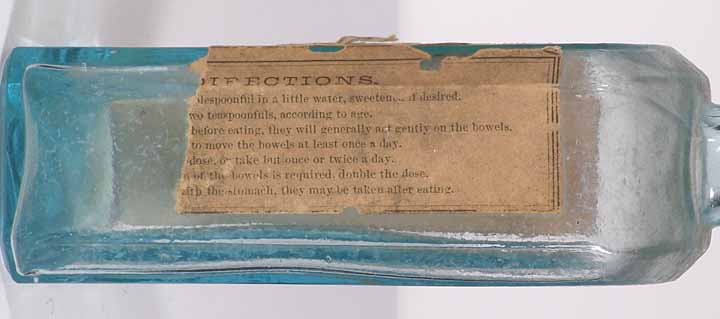 DIRECTIONS.
blespoonful in a little water, sweetened if desired.
wo teaspoonfuls, according to age.
before eating, they will generally act gently on the bowels.
to move the bowels at least once a day.
dose, or take but once or twice a day.
n of the bowels is required, double the dose.
with the stomach, they may be taken after eating.